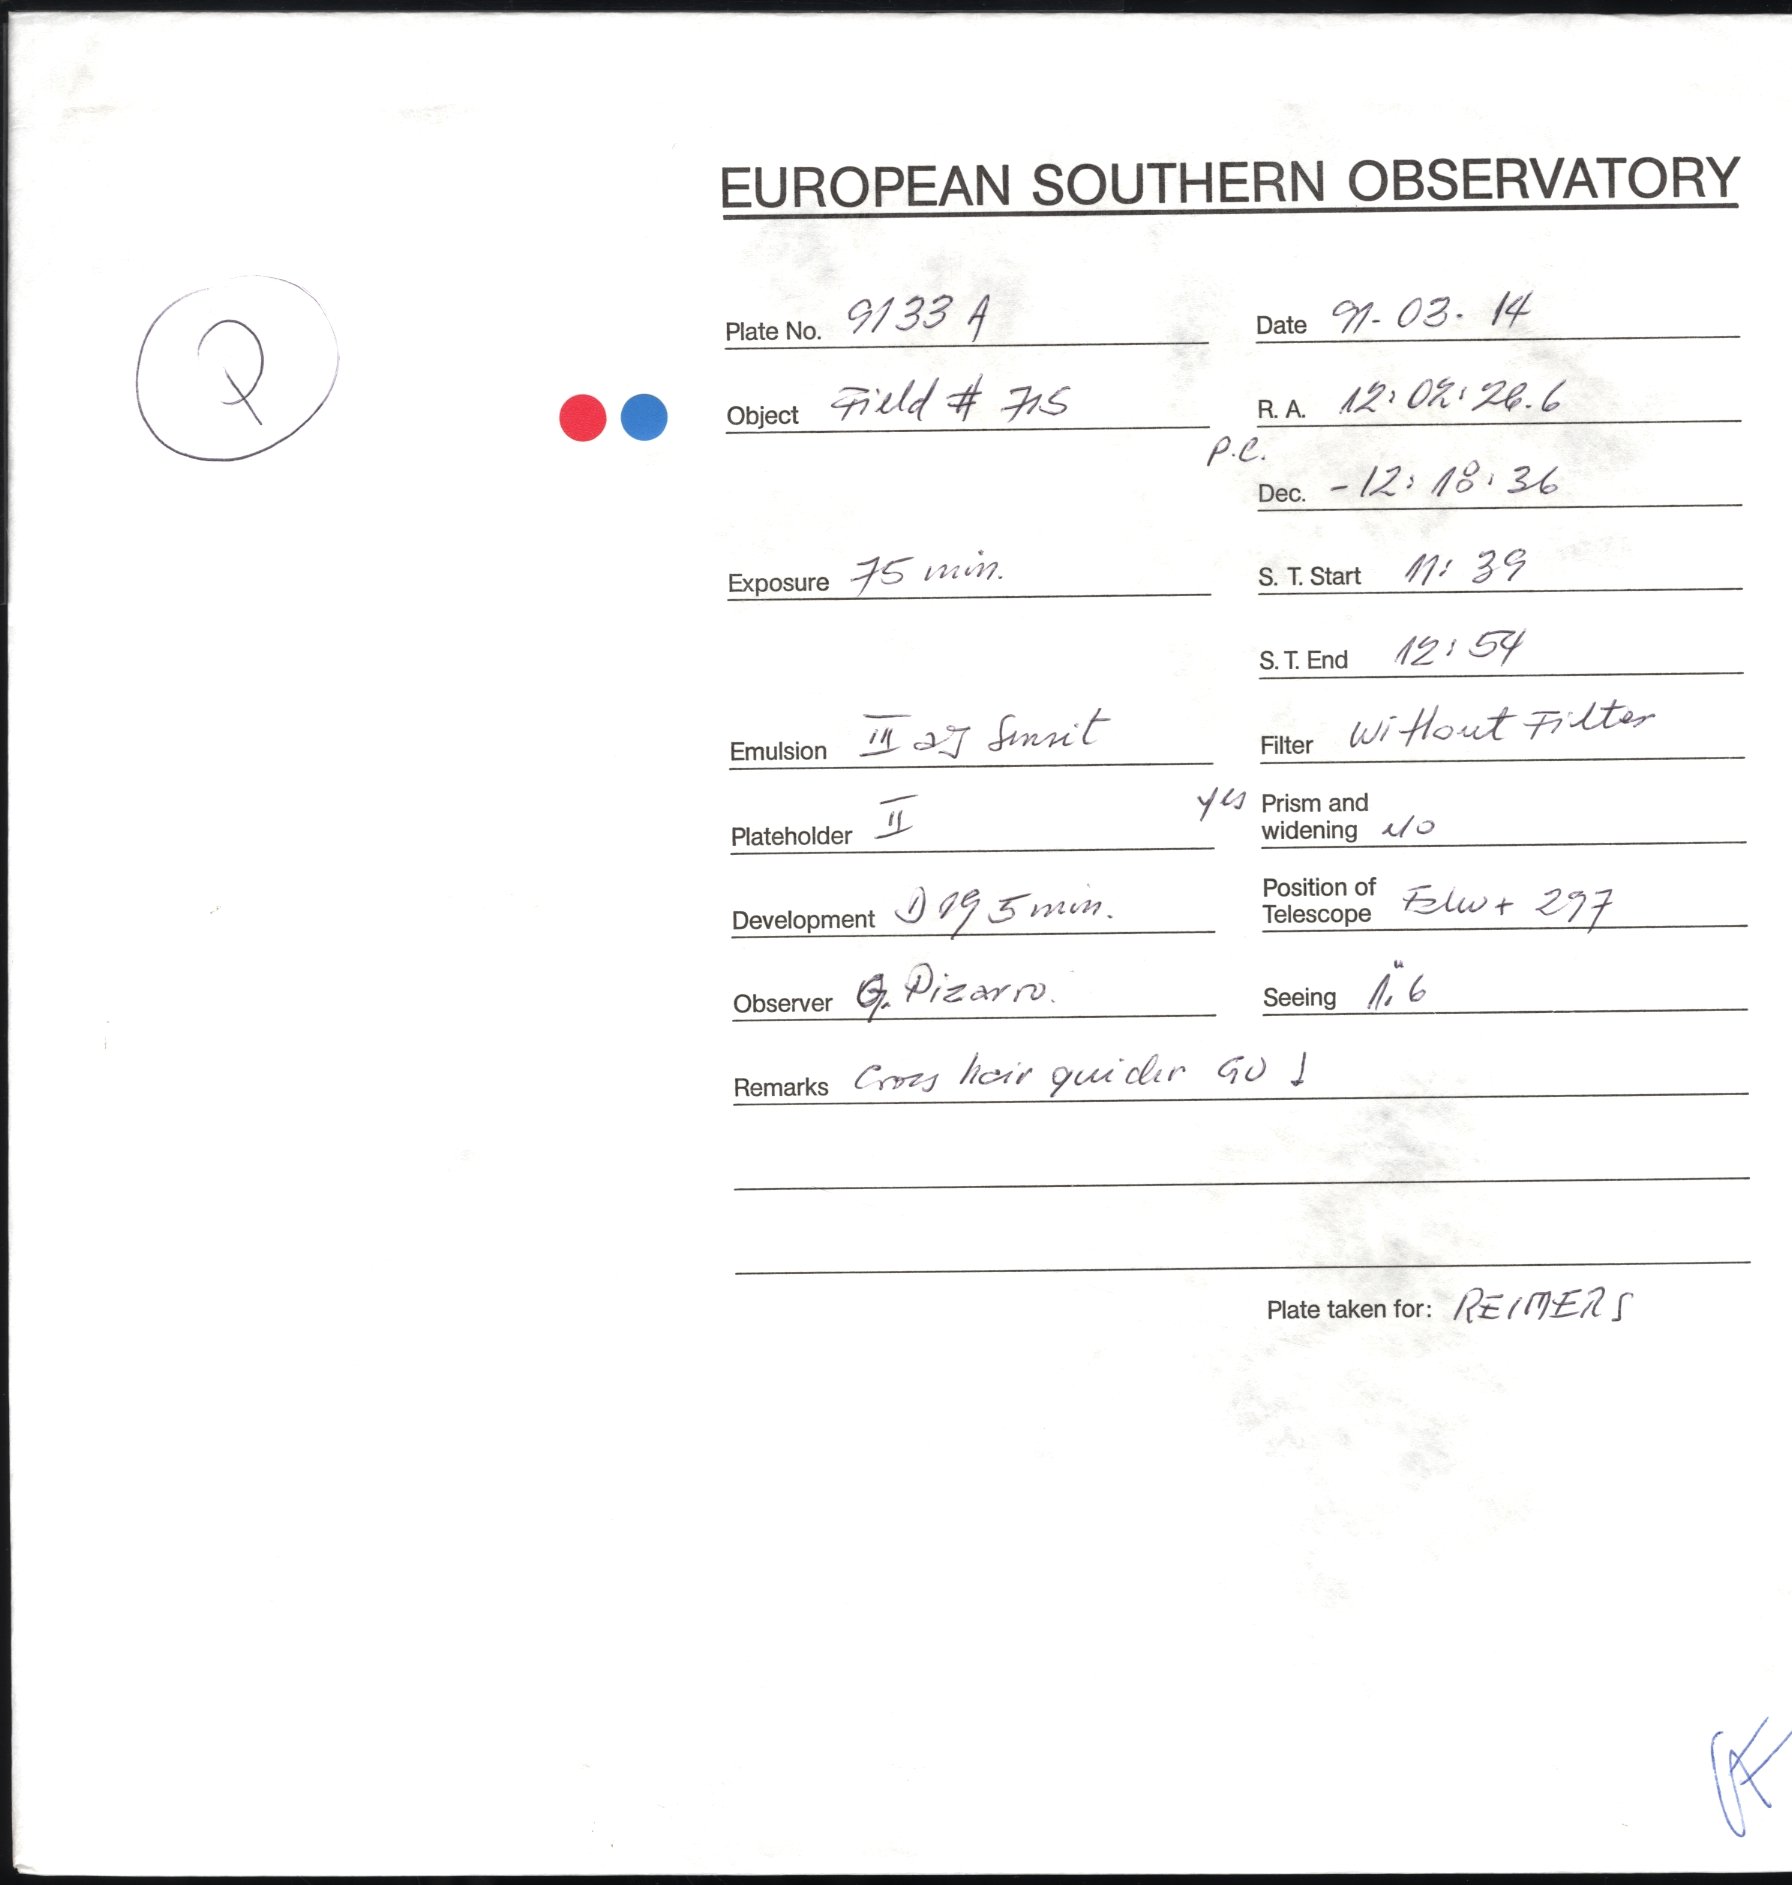 EUROPEAN SOUTHERN OBSERVATORY
Q
Plate No. 9133 A
Date 91-03-14
Object Field # 715
R. A. 12:02:26.6
P.C.
Dec. -12:18:36
Exposure 75 min.
S. T. Start 11:39
S. T. End 12:54
Emulsion III aJ Sensit
Filter Without Filter
Plateholder II
yes Prism and
widening NO
Development D19 5 min.
Position of
Telescope E2W + 297
Observer G. Pizarro.
Seeing 1."6
Remarks Cross hair guider GU I
Plate taken for: REIMERS